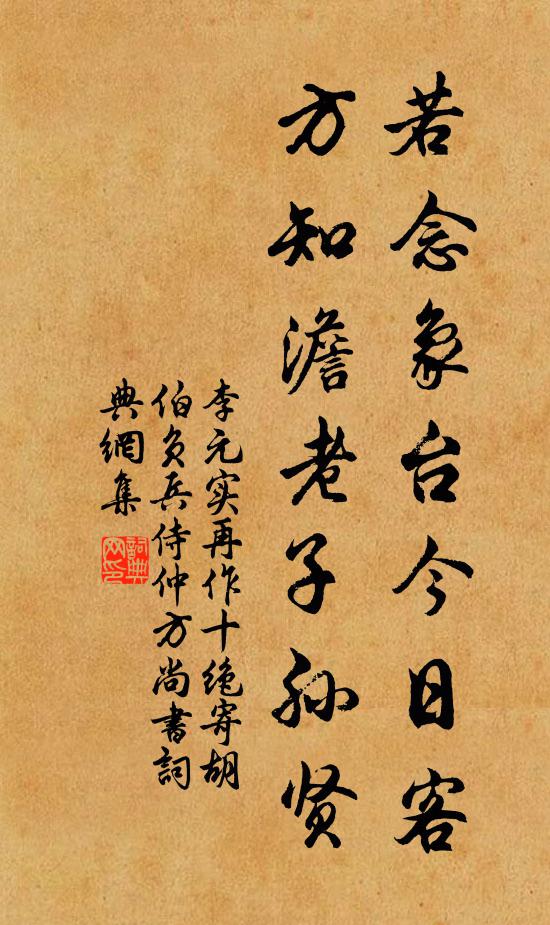 若念象台今日客
方知澹老子孙贤
李元实再作十绝寄胡
伯负兵侍仲方尚書詞
典網集
詞典网印